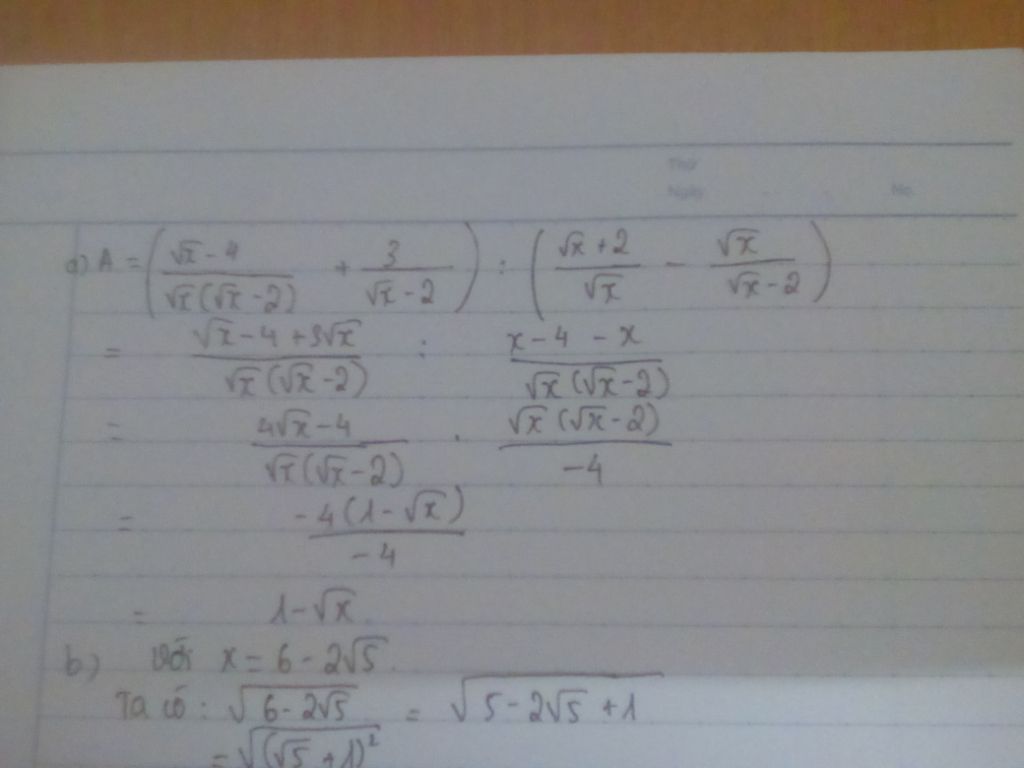 Thứ
Ngày No.
a) A = ( (√x - 4)/(√x(√x - 2)) + 3/(√x - 2) ) : ( (√x + 2)/√x - √x/(√x - 2) )
= (√x - 4 + 3√x)/(√x(√x - 2)) : (x - 4 - x)/(√x(√x - 2))
= (4√x - 4)/(√x(√x - 2)) . (√x(√x - 2))/(-4)
= (-4(1 - √x))/(-4)
= 1 - √x.
b) Với x = 6 - 2√5.
Ta có: √(6 - 2√5) = √(5 - 2√5 + 1)
= √((√5 + 1)²)